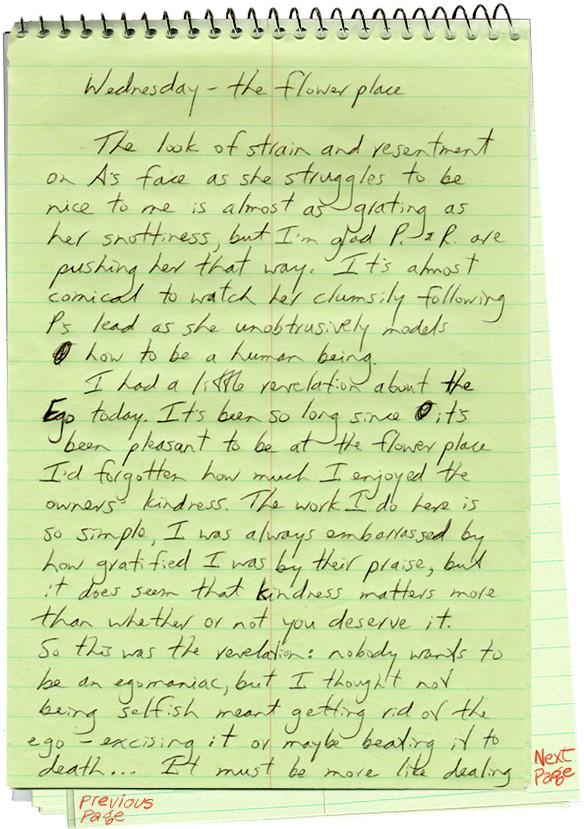 Wednesday - the flower place
The look of strain and resentment
on A's face as she struggles to be
nice to me is almost as grating as
her snottiness, but I'm glad P. & R. are
pushing her that way. It's almost
comical to watch her clumsily following
P's lead as she unobtrusively models
how to be a human being.
I had a little revelation about the
Ego today. It's been so long since it's
been pleasant to be at the flower place
I'd forgotten how much I enjoyed the
owners' kindness. The work I do here is
so simple, I was always embarrassed by
how gratified I was by their praise, but
it does seem that kindness matters more
than whether or not you deserve it.
So this was the revelation: nobody wants to
be an egomaniac, but I thought not
being selfish meant getting rid of the
ego - excising it or maybe beating it to
death... It must be more like dealing
Next
Page
Previous
Page